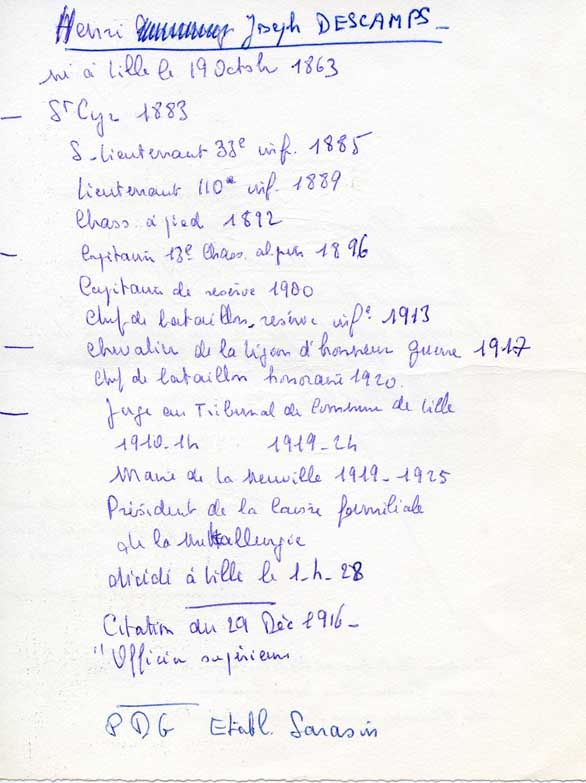 Henri Joseph DESCAMPS
né à Lille le 19 Octobre 1863
St Cyr 1883
S-Lieutenant 33e inf. 1885
Lieutenant 110e inf. 1889
Chass. à pied 1892
Capitaine 13e Chass. alpin 1896
Capitaine de reserve 1900
Chef de bataillon, reserve infie 1913
Chevalier de la légion d'honneur guerre 1917
Chef de bataillon honoraire 1920.
Juge au Tribunal de Commerce de Lille
1910-14 1919-24
Maire de la Neuville 1919-1925
Président de la caisse familiale
de la Métallurgie
décédé à Lille le 1-4-28
Citation du 29 Déc 1916-
"Officier supérieur
PDG Etabl. Sarasin